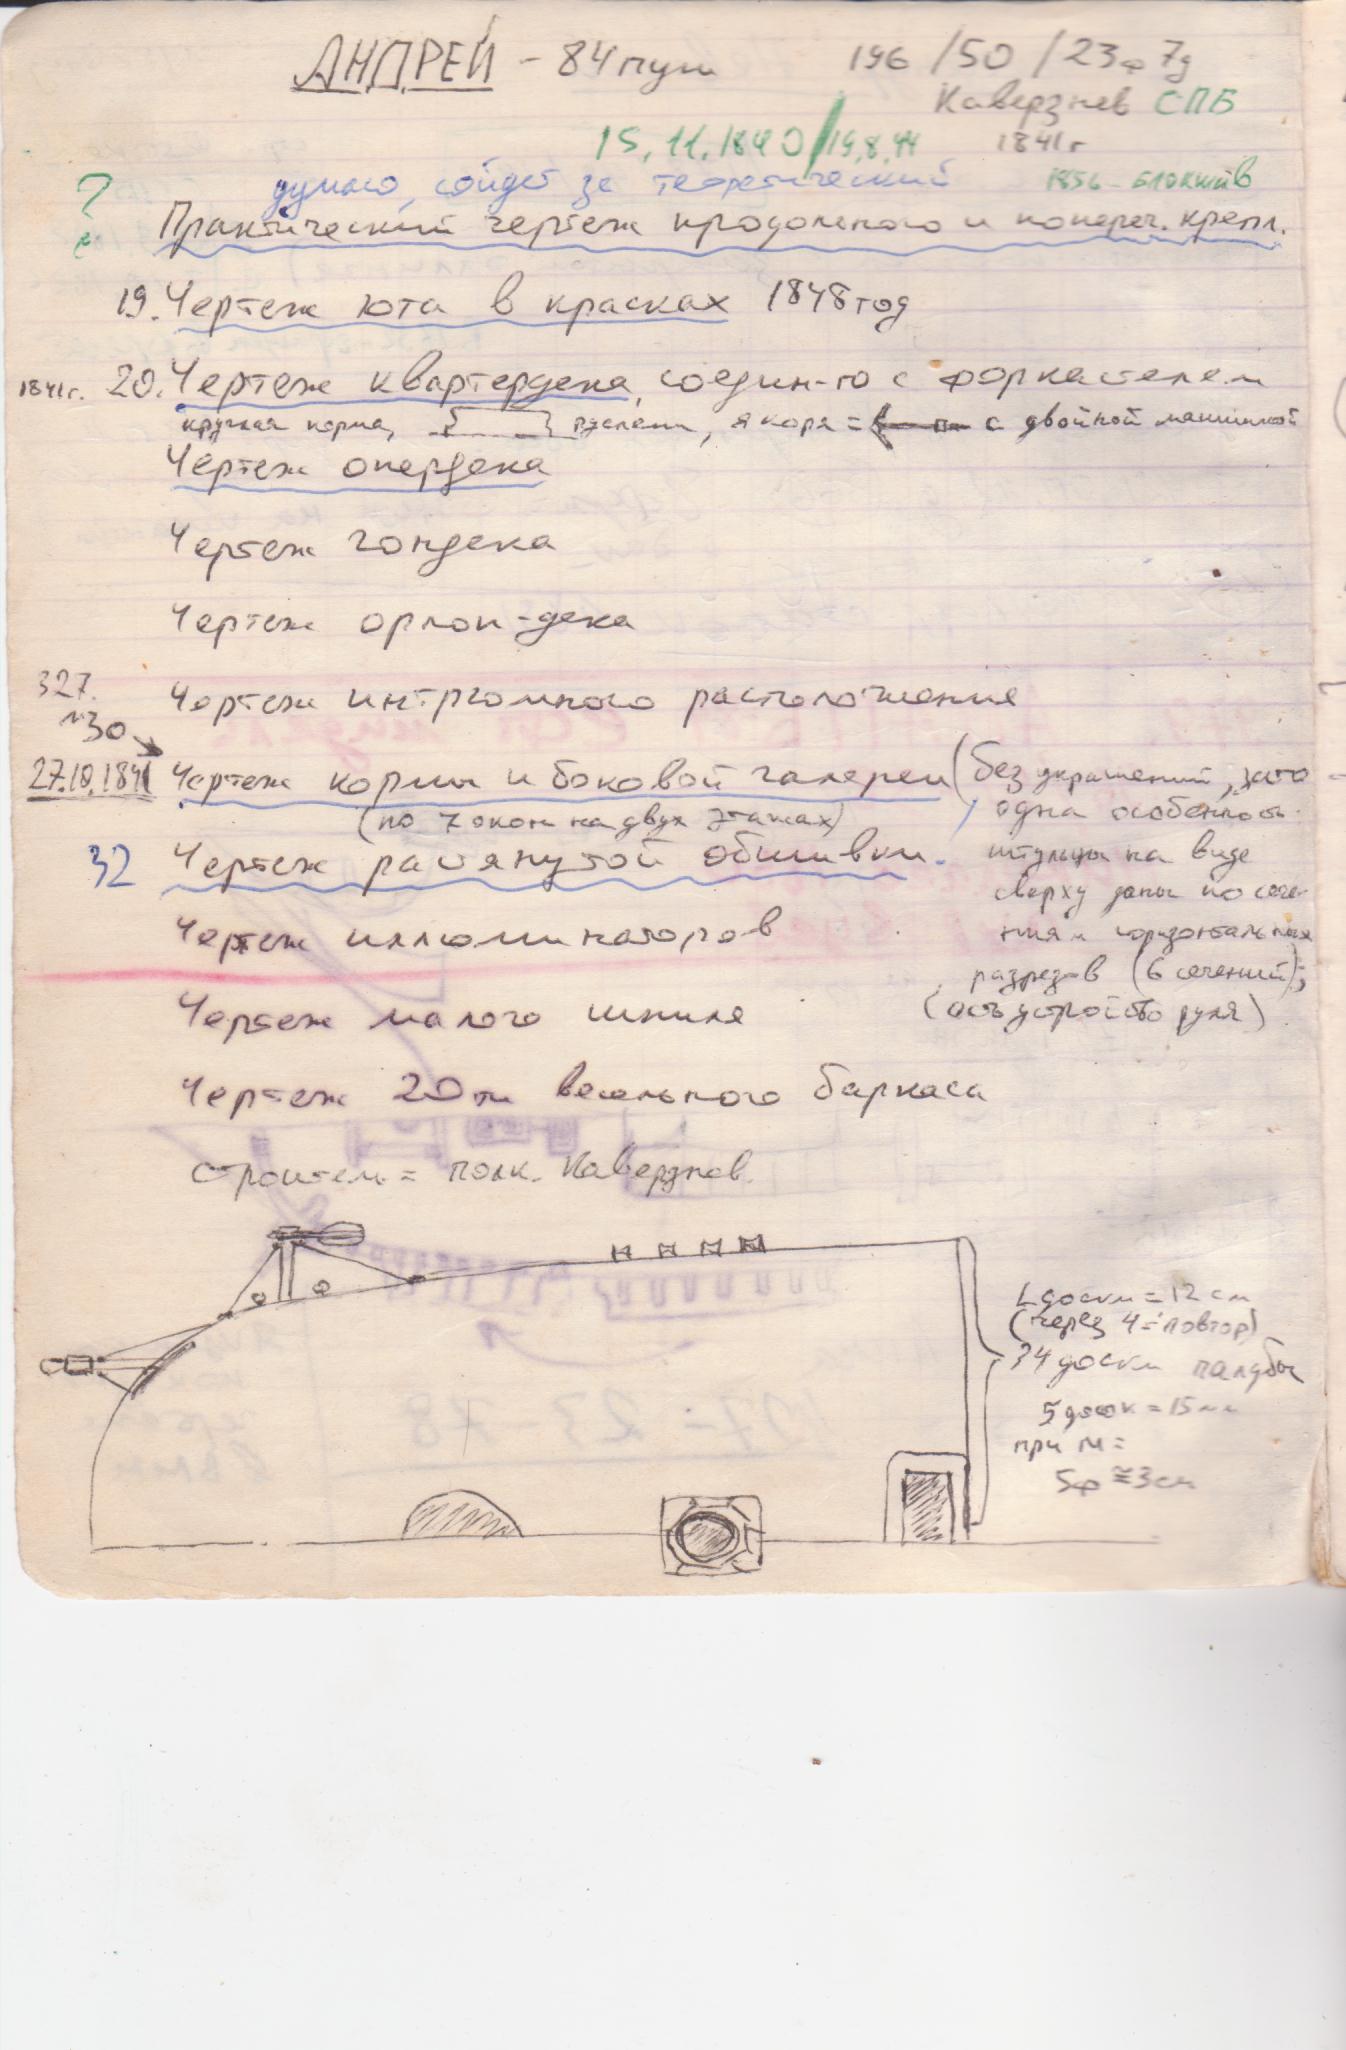 АНДРЕЙ - 84 пуш 196/50/23ф 7д
Каверзнев СПБ
15.11.1840/19.8.44 1841г
думаю, сойдет за теоретический 1856 - блокшив
? Практический чертеж продольного и попереч. крепл.
19. Чертеж юта в красках 1848 год
1841г. 20. Чертеж квартердека, соедин-го с форкастелем
круглая корма, руслени, якоря = с двойной машинкой
Чертеж опердека
Чертеж гондека
Чертеж орлоп-дека
327. Чертеж интрюмного расположения
№30
27.10.1841 Чертеж кормы и боковой галереи (без украшений, зато
(по 7 окон на двух этажах) одна особенность
32 Чертеж растянутой обшивки. штульцы на виде
сверху даны по сече-
Чертеж иллюминаторов ниям горизонтальных
разрезов (6 сечений);
Чертеж малого шпиля (есть устройство руля)
Чертеж 20ти весельного баркаса
строитель = полк. Каверзнев.
L доски = 12 см
(через 4 = повтор)
34 доски палубы
5 досок = 15мм
при м =
5ф ≅ 3см